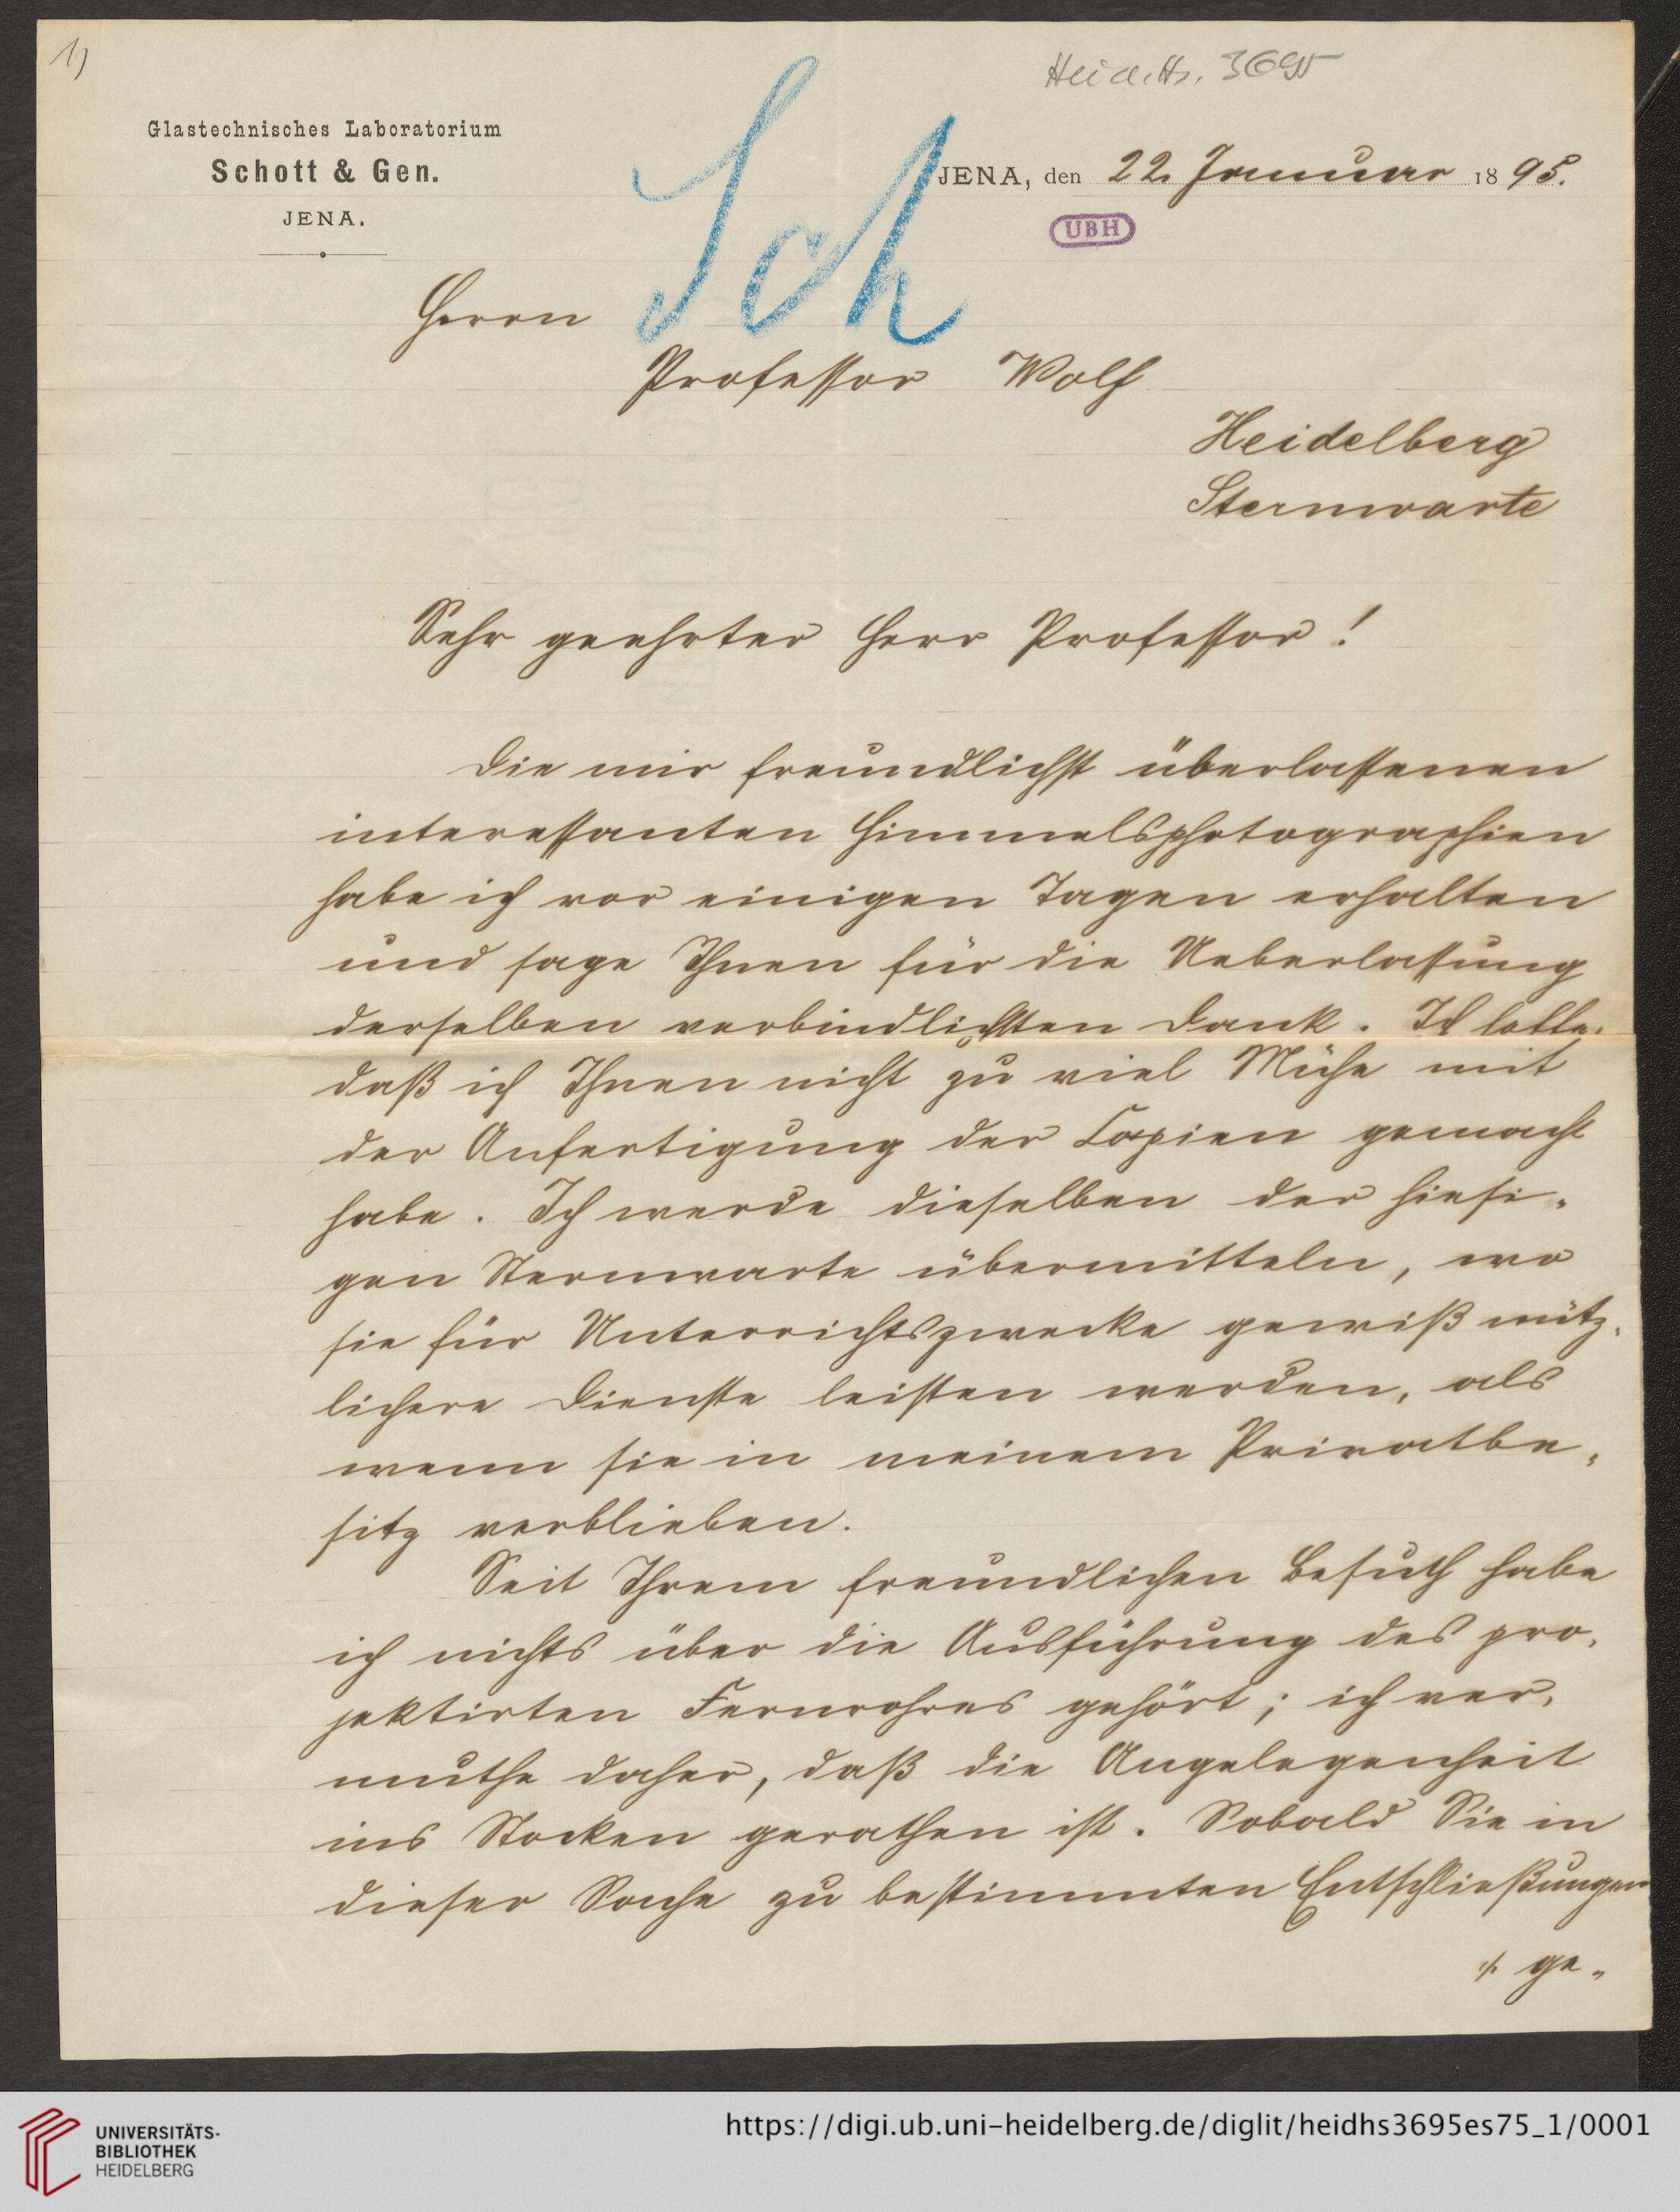 1)
Heid. Hs. 3695
Glastechnisches Laboratorium
Schott & Gen.
JENA.
Sch
JENA, den 22. Januar 1895.
UBH
Herrn
Professor Wolf
Heidelberg
Sternwarte
Sehr geehrter Herr Professor!
Die mir freundlichst überlassenen
interessanten Himmelsphotographien
habe ich vor einigen Tagen erhalten
und sage Ihnen für die Ueberlassung
derselben verbindlichsten Dank. Ich hoffe,
daß ich Ihnen nicht zu viel Mühe mit
der Anfertigung der Copien gemacht
habe. Ich werde dieselben der hiesi-
gen Sternwarte übermitteln, wo
sie für Unterrichtszwecke gewiß nütz-
lichere Dienste leisten werden, als
wenn sie in meinem Privatbe-
sitz verblieben.
Seit Ihrem freundlichen Besuch habe
ich nichts über die Ausführung des pro-
jektirten Fernrohres gehört; ich ver-
muthe daher, daß die Angelegenheit
ins Stocken gerathen ist. Sobald Sie in
dieser Sache zu bestimmten Entschließungen
./. ge-
UNIVERSITÄTS-
BIBLIOTHEK
HEIDELBERG
https://digi.ub.uni-heidelberg.de/diglit/heidhs3695es75_1/0001